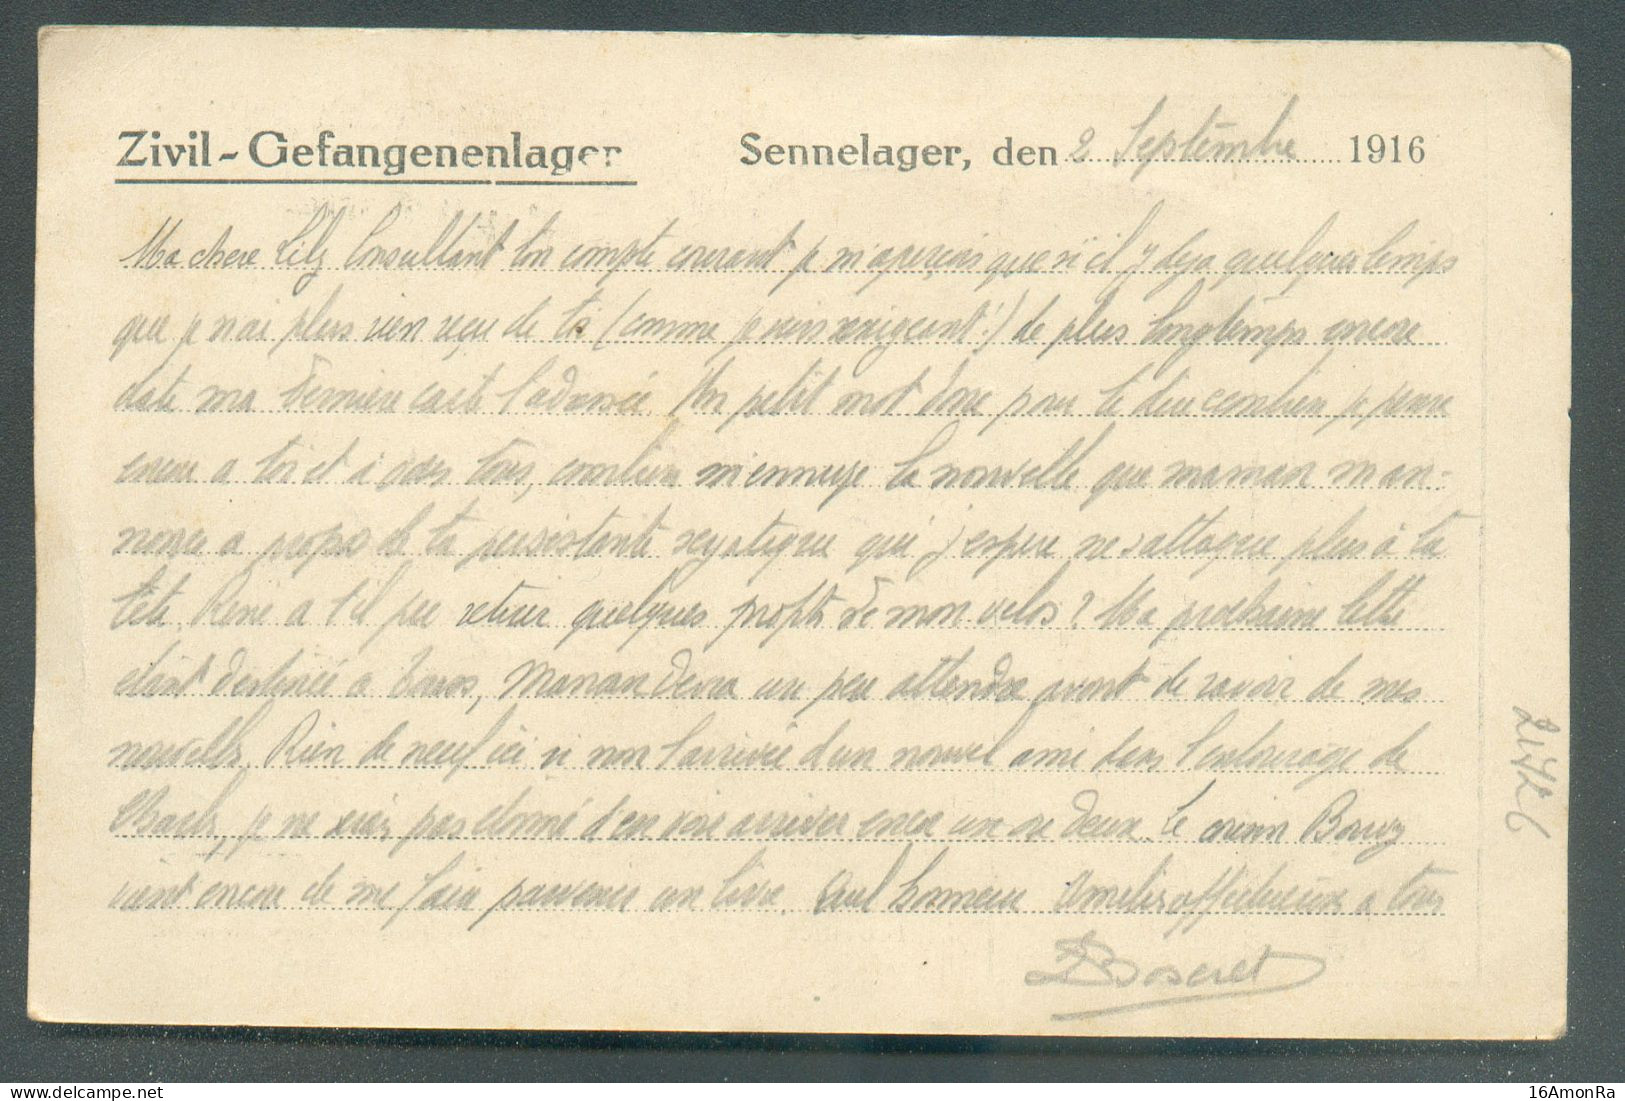 Zivil-Gefangenenlager
Sennelager, den 2 Septembre 1916
Ma chere Lily Consultant ton compte courant je m'aperçois que si il y deja quelques temps
que je n'ai plus rien reçu de toi (comme je suis exigeant!) de plus longtemps encore
date ma derniere carte t'adressée. Un petit mot donc pour te dire combien je pense
encore a toi et à vous tous, combien m'ennuye la nouvelle que maman m'an-
nonce a propos de ta persistante que j'espere ne s'attaque plus à ta
tête. René a t'il pu retirer quelques profits de mon velos? Ma prochaine lettre
etant destinée a Maman devra un peu attendre avant de savoir de mes
nouvelles. Rien de neuf ici si non l'arrivée d'un nouvel ami dans l'entourage de
Charles, je ne suis pas etonné d'en voir arriver encor un ou deux. Le cousin
vient encore de me faire parvenir un livre. affectueux a tous
Boseret
21726
16AmonRa